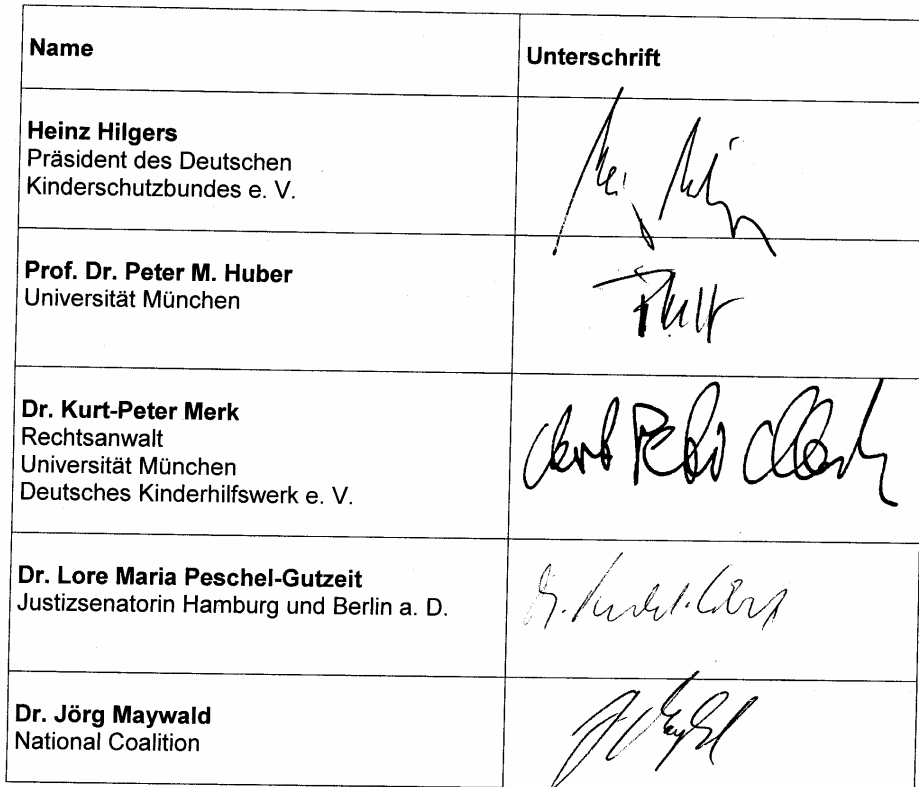 Name
Unterschrift
Heinz Hilgers
Präsident des Deutschen
Kinderschutzbundes e. V.
Prof. Dr. Peter M. Huber
Universität München
Dr. Kurt-Peter Merk
Rechtsanwalt
Universität München
Deutsches Kinderhilfswerk e. V.
Dr. Lore Maria Peschel-Gutzeit
Justizsenatorin Hamburg und Berlin a. D.
Dr. Jörg Maywald
National Coalition